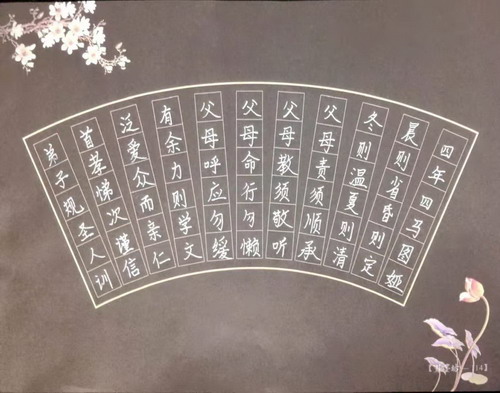 弟子规圣人训
首孝悌次谨信
泛爱众而亲仁
有余力则学文
父母呼应勿缓
父母命行勿懒
父母教须敬听
父母责须顺承
冬则温夏则清
晨则省昏则定
四年四马图娅